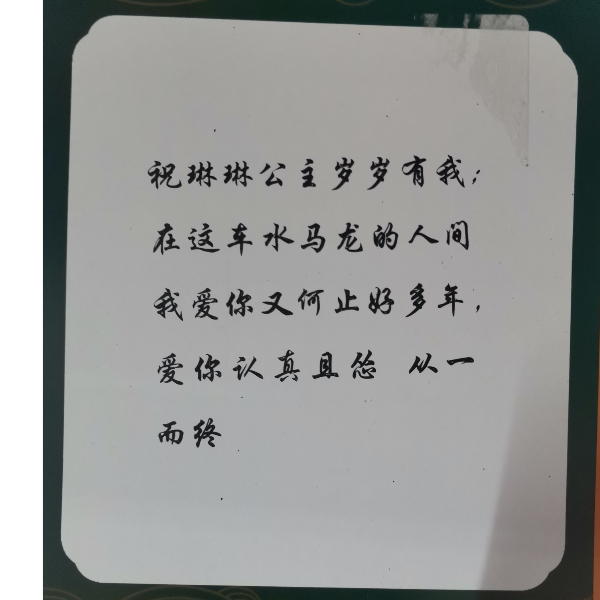 祝琳琳公主岁岁有我;
在这车水马龙的人间
我爱你又何止好多年,
爱你认真且怂 从一
而终